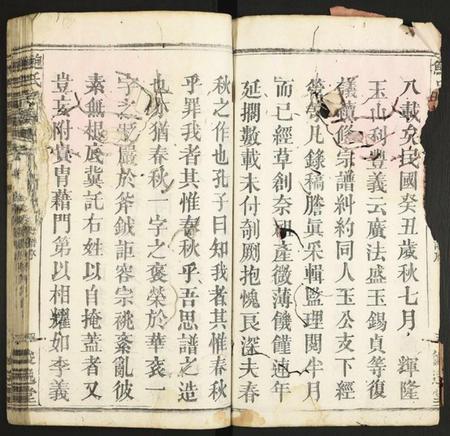 八載矣民國癸丑歲秋七月輝隆
玉山利豐義云廣法盛玉錫貞等復
議續修宗譜糾約同人玉公支下經
營凡錄稿謄眞采輯監理閱半月
而已經草創奈祖產微薄饑饉連年
延擱數載未付剞劂抱愧良深夫春
秋之作也孔子曰知我者其惟春秋
乎罪我者其惟春秋乎吾思譜之造
也亦猶春秋一字之褒榮於華袞一
字之貶嚴於斧鉞詎容宗祧紊亂彼
素無根底冀託右姓以自掩蓋者又
豈妄附貴胄藉門第以相耀如李義
鮑氏